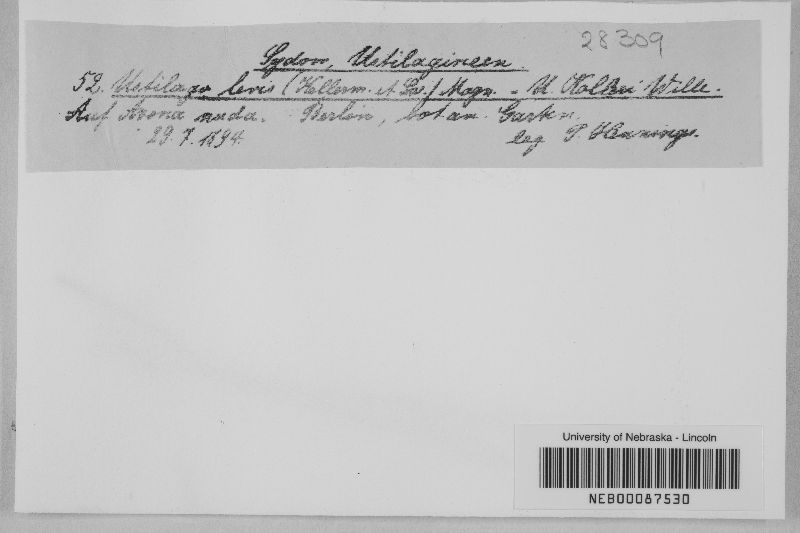 28309
Sydow, Ustilagineen.
52. Ustilago levis (Kellerm. et Sw.) Magn. = U. Kolleri Wille.
Auf Avena nuda. Berlin, botan. Garten.
29. 7. 1894. leg. P. Hennings.
University of Nebraska - Lincoln
NEB00087530